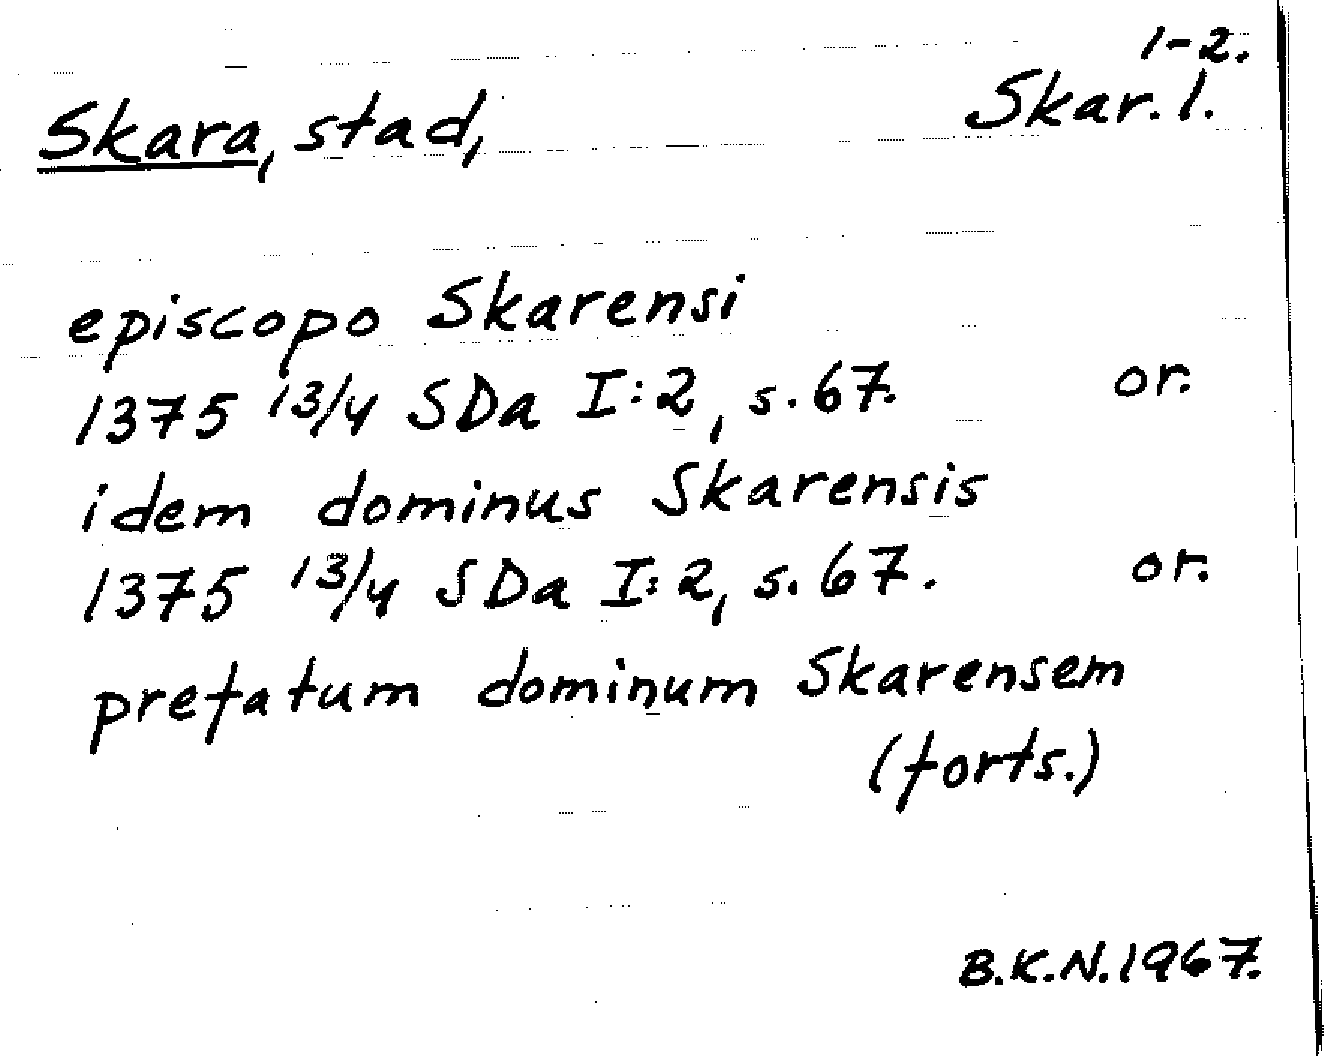 1-2.
Skara, stad, Skar. l.
episcopo Skarensi
1375 13/4 SDa I:2, s. 67. or.
idem dominus Skarensis
1375 13/4 SDa I:2, s. 67. or.
prefatum dominum Skarensem
(forts.)
B.K.N. 1967.